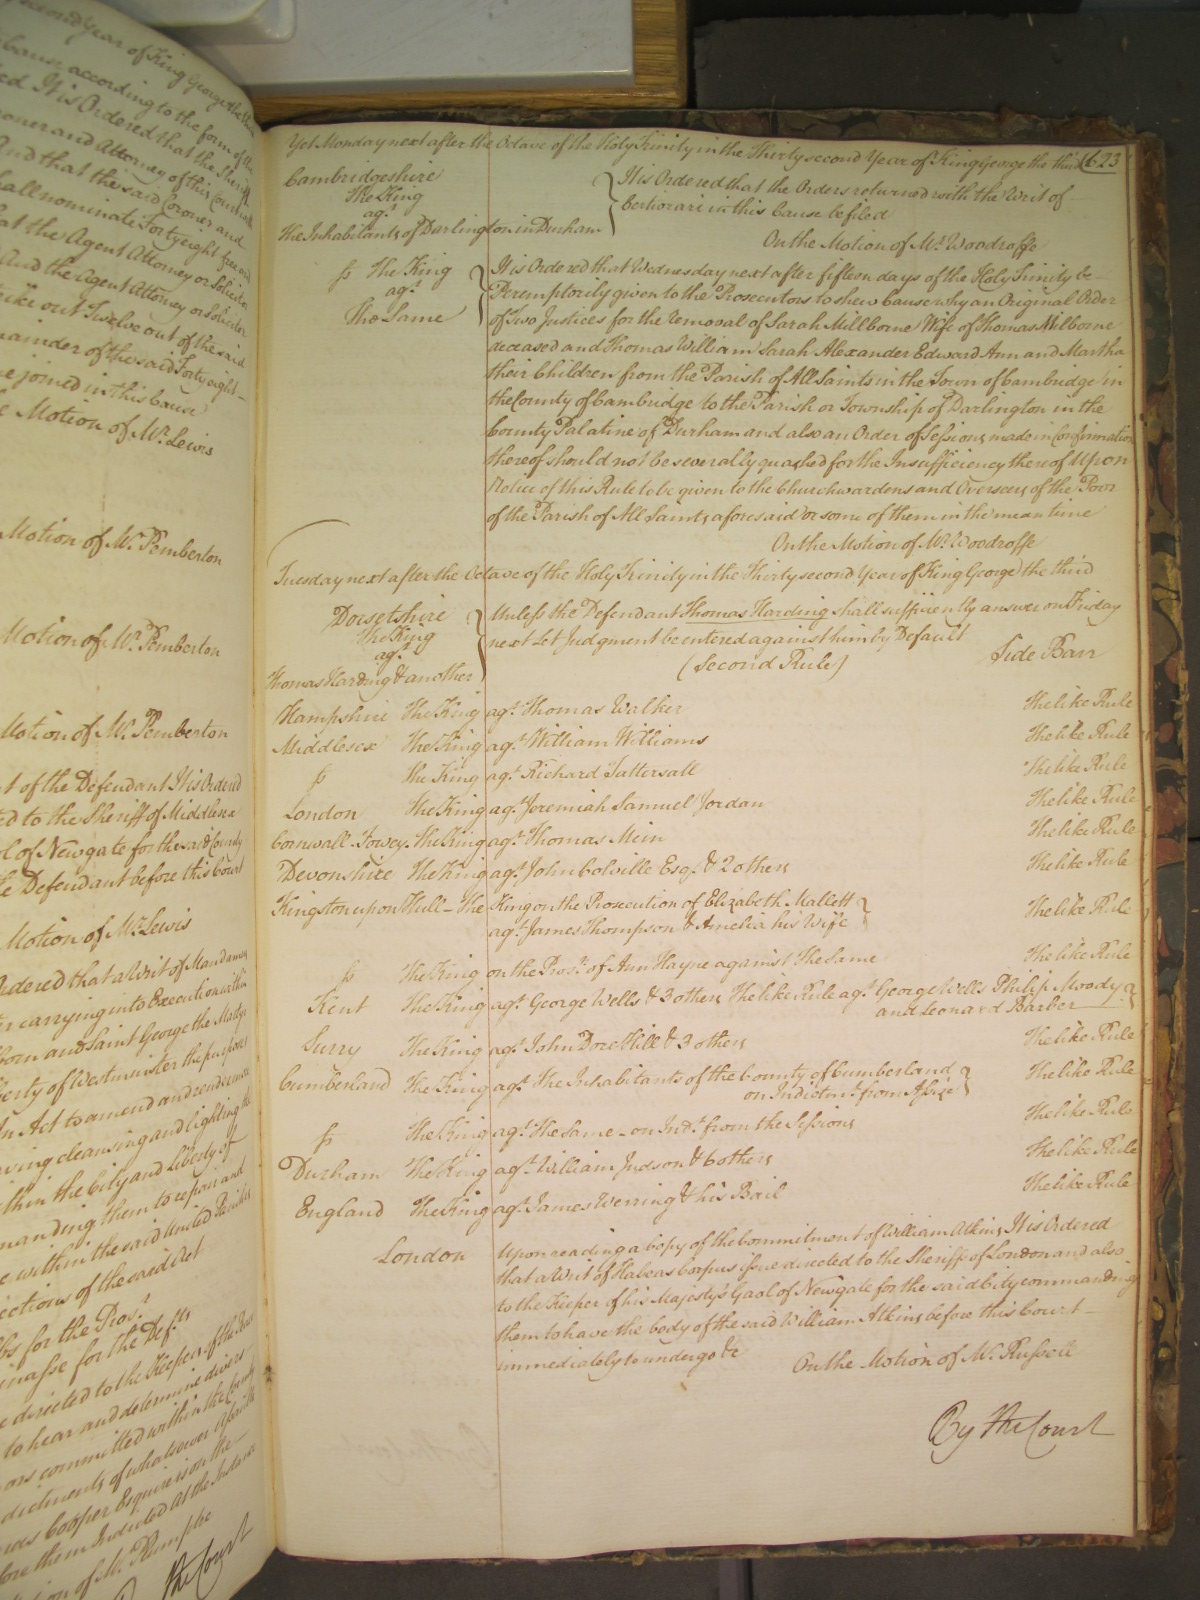 second Year of King George the
Cause according to the form of
It is Ordered that the Sheriff
Coroner and Attorney of this Court
And that the said Coroner and
shall nominate Forty eight free
at the Agent Attorney or Solicitor
And the Agent Attorney or Solicitor
strike out Twelve out of the said
remainder of the said Forty eight
joined in this Cause
Motion of Mr. Lewis
Motion of Mr. Pemberton
Motion of Mr. Pemberton
Motion of Mr. Pemberton
of the Defendant It is Ordered
to the Sheriff of Middlesex
of Newgate for the said County
the Defendant before this Court
Motion of Mr. Lewis
Ordered that a Writ of Mandamus
for carrying into Execution within
and Saint George the Martyr
Liberty of Westminster the purposes
An Act to amend and render more
paving cleansing and lighting the
within the City and Liberty of
commanding them to repair and
within the said United Parishes
directions of the said Act
for the Pros.r
for the Def.ts
directed to the Keeper of the
to hear and determine divers
committed within the County
indictments of whatsoever
Cooper Esquire is on the
before them Indicted At the Instance
of Mr. Plumptre
the Court
Yet Monday next after the Octave of the Holy Trinity in the Thirty second Year of King George the third 623
Cambridgeshire
The King
ag.t
The Inhabitants of Darlington in Durham
It is Ordered that the Orders returned with the Writ of
Certiorari in this Cause be filed
On the Motion of Mr. Woodroffe
The King
ag.t
The Same
It is Ordered that Wednesday next after fifteen days of the Holy Trinity be
Peremptorily given to the Prosecutors to shew Cause why an Original Order
of Two Justices for the removal of Sarah Millborne Wife of Thomas Milborne
deceased and Thomas William Sarah Alexander Edward Ann and Martha
their Children from the Parish of All Saints in the Town of Cambridge in
the County of Cambridge to the Parish or Township of Darlington in the
County Palatine of Durham and also an Order of Sessions made in Confirmation
thereof should not be severally quashed for the Insufficiency thereof Upon
Notice of this Rule to be given to the Churchwardens and Overseers of the Poor
of the Parish of All Saints aforesaid or some of them in the mean time
On the Motion of Mr. Woodroffe
Tuesday next after the Octave of the Holy Trinity in the Thirty second Year of King George the third
Dorsetshire
The King
ag.t
Thomas Harding & another
Unless the Defendant Thomas Harding shall sufficiently answer on Friday
next Let Judgment be entered against him by Default
(Second Rule) Side Barr
Hampshire The King ag.t Thomas Walker The like Rule
Middlesex The King ag.t William Williams The like Rule
The King ag.t Richard Tattersall The like Rule
London The King ag.t Jeremiah Samuel Jordan The like Rule
Cornwall Fowey The King ag.t Thomas Mein The like Rule
Devonshire The King ag.t John Colville Esq.r & 2 others The like Rule
Kingston upon Hull – The King on the Prosecution of Elizabeth Mallett
ag.t James Thompson & Amelia his Wife The like Rule
The King on the Pros.n of Ann Hayne against The Same The like Rule
Kent The King ag.t George Wells & 3 others The like Rule ag.t George Wells Philip Moody
and Leonard Barber
Surry The King ag.t John Dore Hill & 3 others The like Rule
Cumberland The King ag.t The Inhabitants of the County of Cumberland
on Indictm.t from Assize The like Rule
The King ag.t The Same – on Ind.t from the Sessions The like Rule
Durham The King ag.t William Judson & 6 others The like Rule
England The King ag.t James Werring & his Bail The like Rule
London
Upon reading a Copy of the Commitment of William Atkins It is Ordered
that a Writ of Habeas Corpus issue directed to the Sheriffs of London and also
to the Keeper of his Majesty's Gaol of Newgate for the said City commanding
them to have the body of the said William Atkins before this Court –
immediately to undergo &c
On the Motion of Mr. Russell
By the Court